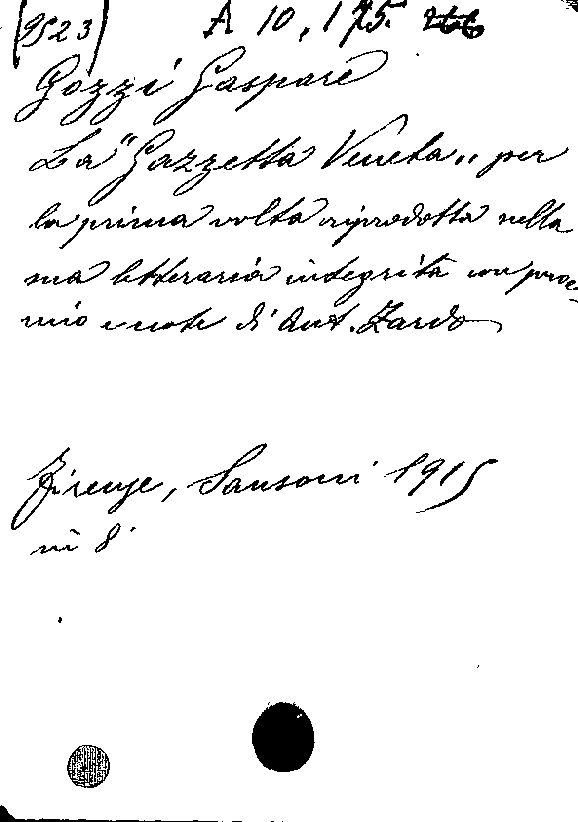 (9523) A 10, 175.
Gozzi Gaspare
La "Gazzetta Veneta" per
la prima volta riprodotta nella
sua letteraria integrità con proe-
mio e note di Ant. Zardo
Firenze, Sansoni 1915
in 8°